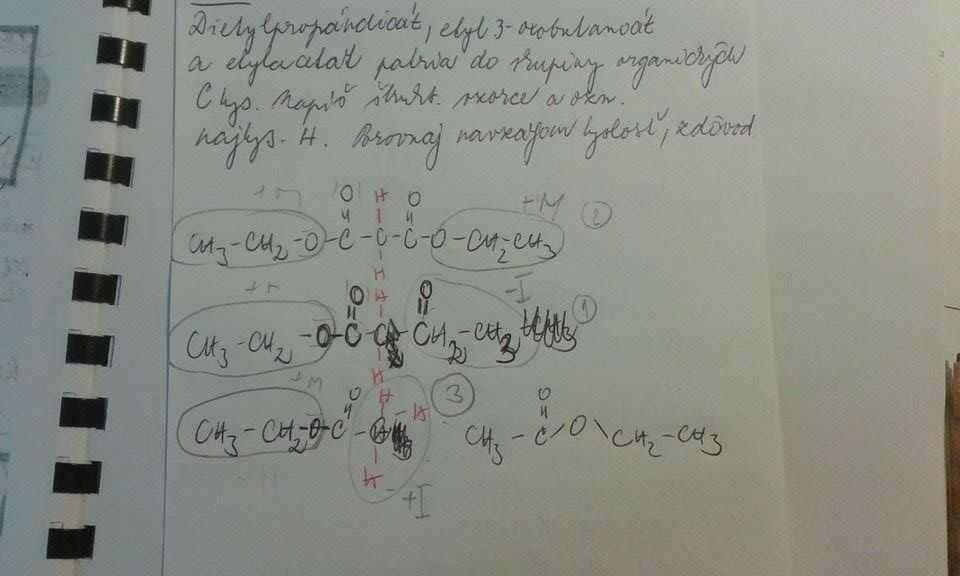 Dietylpropándioát, etyl 3-oxobutanoát
a etylacetát patria do skupiny organických
C kys. Napíš štrukt. vzorce a ozn.
najkys. H. Porovnaj navzájom kyslosť, zdôvod
+M O H O +M ②
CH3-CH2-O-C-C-C-O-CH2-CH3
H
O H O -I ①
CH3-CH2-O-C-C-C
H
+M O H ③ O
CH3-CH2-O-C H CH3-C-O-CH2-CH3
H
+I